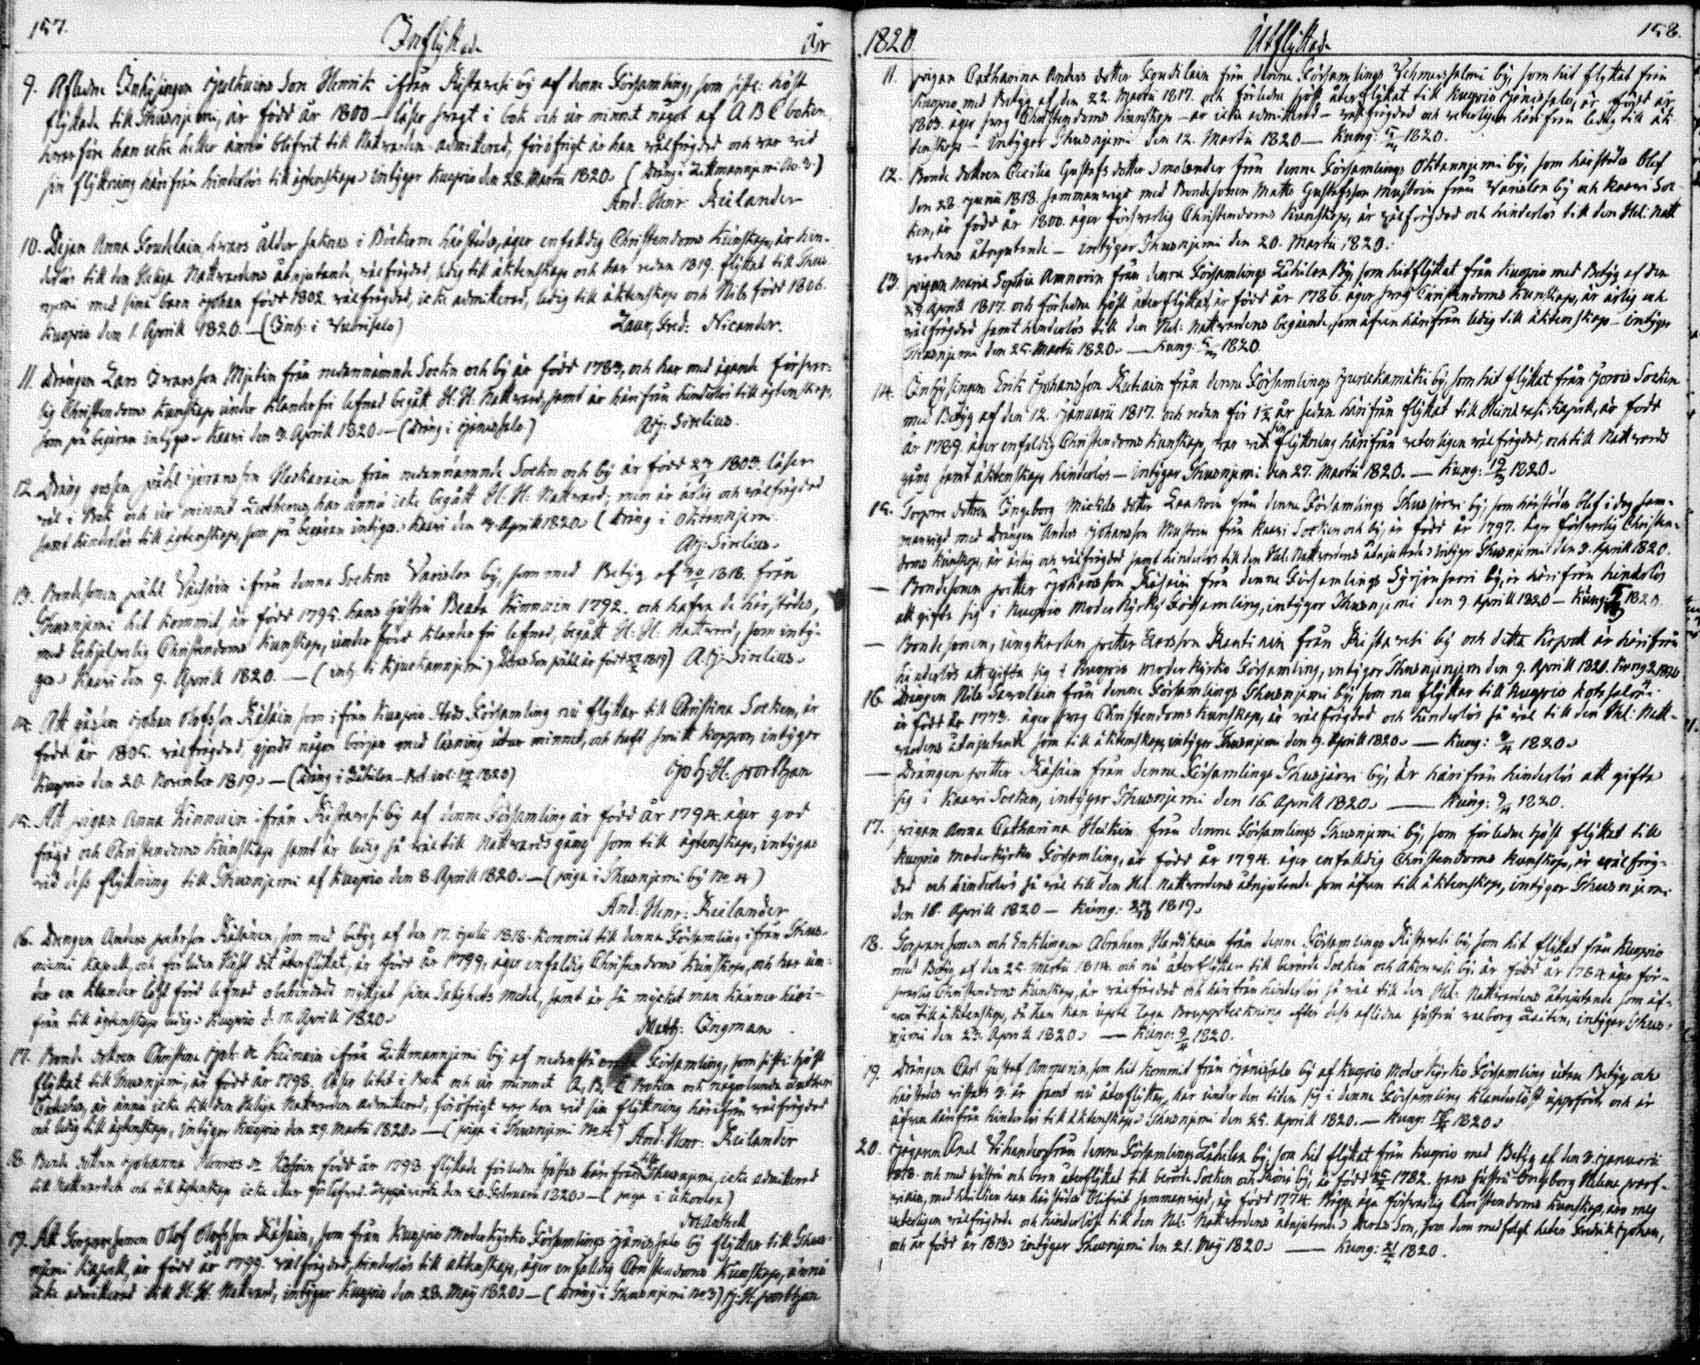 157. Inflyttade År
9. Afledne Inhysingen Juskuins Son Henrik ifrån Ristavesi by af denne Församling, som siste höst
flyttade till Thusnjemi, är född år 1800 — läser svagt i bok och ur minnet något af ABC boken
hvarföre han icke heller ännu blifvit till Nattvarden admitterad, föröfrigt är han välfrägdad och var vid
sin flyttning härifrån hinderlös till ägtenskap, intygar Kuopio den 28 Martii 1820. (Dräng i Litmannjemi No 3)
And: Henr: Keilander
10. Pigan Anna Goudelain, hvars ålder saknas i Böckerne härstädes, äger enfaldig Christendoms Kunskap, är hin-
derlös till den Heliga Nattvardens åtnjutande, välfrägdad, ledig till äktenskap och har redan 1819 flyttat till Thus-
njemi med sina barn Johan född 1802 välfrägdad, icke admitterad, ledig till äktenskap och Nils född 1806.
Kuopio den 1. April 1820. — (Inh: i Vuorisalo) Laur. Fred: Nicander.
11. Drängen Lars Ivarsson Mjelin från nedannämnde Socken och by är född 1783, och har med ägande försvar-
lig Christendoms Kunskap under klanderfri lefnad begått H. H. Nattvard, samt är härifrån hinderlös till ägtenskap,
som på begäran intygas. Kaavi den 9 April 1820. — (Dräng i Jänissalo) Adj: Sirelius.
12. Dräng gossen Påhl Jöransson Heskanain från nedannämnde Socken och by är född 1803. läser
väl i Bok och ur minnet Lutherus, har ännu icke begått H. H. Nattvard, men är ärlig och välfrägdad
samt hinderlös till ägtenskap, som på begäran intygas. Kaavi den 9 April 1820. (Dräng i Oktennjemi
Adj: Sirelius.
13. Bondesonen Påhl Väisäin ifrån denna Sockens Varislax by, som med Betyg af 1818. från
Thusnjemi hit kommit, är född 1795. hans hustru Beata Kinnuin 1792. och hafva de härstädes,
med behjelpelig Christendoms Kunskap, under förd klanderfri lefnad, begått H. H. Nattvard, som inty-
gas Kaavi den 9. Aprill 1820. — (inh. i Kjuckannjemi) Adj: Sirelius.
14. Att gossen Johan Olofsson Räsäin som ifrån Kuopio Stads Församling nu flyttar till Christina Socken, är
född år 1805. välfrägdad, gjordt någon början med läsning utur minnet, och haft smitt koppor, intygar
Kuopio den 20. November 1819. — (Dräng i Lähilax — 1820) Joh. H. Porthan
15. Att pigan Anna Kinnuin ifrån Ristavesi by af denne Församling är född år 1794. äger god
frägd och Christendoms Kunskap samt är ledig så väl till Nattvardsgång som till ägtenskap, intygas
vid dess flyttning till Thusnjemi af Kuopio den 8. Aprill 1820. — (piga i Thusnjemi by No 4)
And: Henr: Keilander
16. Drengen Anders Pehrson Räsänen, som med betyg af den 17. Julii 1818. kommit till denna Församling ifrån Thus-
niemi Kapell, och förliden Höst dit återflyttat, är född år 1799, äger enfaldig Christendoms Kunskap, och har un-
der en klander löst förd lefnad obehindradt nyttjat sina Salighets Medel, samt är så mycket man känner häri-
från till ägtenskap ledig. Kuopio d. 12. Aprill 1820. Matth: Ingman.
17. Bonde dottren Christina Joh: dr Keinäin ifrån Litmannjemi by af nedanstå Församling, som siste höst
flyttat till Thusnjemi, är född år 1798. läser litet i Bok och ur minnet A, B, C Boken och någorlunda Lutheri
Cateches, är ännu icke till den Heliga Nattvarden admitterad, föröfrigt var hon vid sin flyttning härifrån välfrägdad
och ledig till ägtenskap, intygar Kuopio den 29. Martii 1820. — (piga i Thusnjemi No 4) And: Henr: Keilander
18. Bonde dottren Johanna Henrics dr född år 1793 flyttade förledne höstas härifrån till Thusnjemi, icke admitterad
till Nattvarden och till ägtenskap icke eller förlofvad. den 20. Februarii 1820. — (piga i Ukonlax)
19. Att Torparesonen Olof Olofsson Räsäin, som från Kuopio Moderkyrko Församlings Jänissalo by flyttar till Thus-
njemi Kapell, är född år 1799. välfrägdad, hinderlös till äktenskap, äger enfaldig Christendoms Kunskap, ännu
icke admitterad till H. H. Nattvard, intygar Kuopio den 28. Maj 1820. — (Dräng i Thusnjemi No 3) J. H. Porthan
1820 Utflyttade 158.
11. Pigan Catharina Anders dotter Goudilain från denne Församlings Vehmersalmi by, som hit flyttat från
Kuopio med Betyg af den 22 Martii 1817. och förledne höst återflyttat till Kuopio Jänissalo, är född år
1803. äger svag Christendoms Kunskap — är icke admitterad — välfrägdad och veterligen härifrån ledig till äk-
tenskap — intygar Thusnjemi den 12. Martii 1820 — Kung: 1820.
12. Bonde dottren Cecilia Gustafs dotter Smolander från denne Församlings Oktannjemi by, som härstädes blef
den 28 Junii 1818. sammanvigd med Bondesonen Matts Gustafsson Mustoin från Varislax by och Kaavi Soc-
ken, är född år 1800. äger försvarlig Christendoms Kunskap, är välfrägdad och hinderlös till den Hel: Natt
vardens åtnjutande — intygar Thusnjemi den 20. Martii 1820.
13. Pigan Maria Sophia Ammorin från denne Församlings Lähilax By, som hitflyttat från Kuopio med Betyg af den
29 Aprill 1817. och förledne höst återflyttat, är född år 1786. äger svag Christendoms Kunskap, är ärlig och
välfrägdad samt hinderlös till den Hel: Nattvardens begående, som äfven härifrån ledig till äktenskap — intygar
Thusnjemi den 25. Martii 1820. — Kung: 1820.
14. Inhysingen Erik Johansson Rutiain från denne Församlings Jurickamäki by, som hit flyttat från Jorois Socken
med Betyg af den 12. Januarii 1817. och redan för 1½ år sedan härifrån flyttat till Kapell, är född
år 1789. äger enfaldig Christendoms Kunskap, var vid sin flyttning härifrån veterligen välfrägdad, och till Nattvards
gång samt äktenskap hinderlös — intygar Thusnjemi den 27. Martii 1820. — Kung: 1820.
15. Torpare dottren Ingeborg Mickels dotter Laakoin från denne Församlings Thusjärvi by, som härstädes blef i dag sam-
manvigd med Drängen Anders Johansson Mustoin från Kaavi Socken och by, är född år 1797. äger försvarlig Christen-
doms Kunskap, är ärlig och välfrägdad samt hinderlös till den Hel. Nattvardens åtnjutande, intygar Thusnjemi den 9. Aprill 1820.
— Bondesonen Petter Johansson Räsäin från denne Församlings Syrjänsari by, är härifrån hinderlös
att gifta sig i Kuopio Moder Kyrko Församling, intygar Thusnjemi den 9. Aprill 1820 — Kung: 1820
— Bonde sonen, ungkarlen Petter Larsson Rautiain från Ristavesi by och detta Kapell är härifrån
hinderlös att gifta sig i Kuopio Moderkyrko Församling, intygar Thusnjemi den 9. Aprill 1820. Kung: 1820
16. Drängen Nils Savolain från denne Församlings Thusnjemi by, som nu flyttar till Kuopio Kotasalmi
är född år 1773. äger svag Christendoms Kunskap, är välfrägdad och hinderlös så väl till den Hel: Natt-
vardens åtnjutande som till äktenskap, intygar Thusnjemi den 9. Aprill 1820. — Kung: 1820.
— Drängen Petter Räsäin från denne Församlings Thusjärvi by, är härifrån hinderlös att gifta
sig i Kaavi Socken, intygar Thusnjemi den 16. Aprill 1820. — Kung: 1820.
17. Pigan Anna Catharina Heickin från denne Församlings Thusnjemi by, som förledne höst flyttat till
Kuopio Moderkyrko Församling, är född år 1794. äger enfaldig Christendoms Kunskap, är välfräg-
dad och hinderlös så väl till den Hel. Nattvardens åtnjutande som äfven till äktenskap, intygar Thusnjemi
den 16. Aprill 1820 — Kung: 1819.
18. Torpare sonen och Enklingen Abraham Hardikain från denne Församlings Ristavesi by, som hit flyttat från Kuopio
med Betyg af den 25 Martii 1814. och nu återflyttar till berörde Socken och Akonvesi by är född år 1784 äger för-
svarlig Christendoms Kunskap, är välfrägdad och härifrån hinderlös så väl till den Hel: Nattvardens åtnjutande som äf-
ven till äktenskap, då han kan upte laga Boupteckning efter dess aflidna hustru Valborg, intygar Thus-
njemi den 23. Aprill 1820. — Kung: 1820.
19. Drängen Carl Gustaf Ammorin, som hit kommit från Jänissalo by af Kuopio Moder Kyrko Församling utan Betyg, och
härstädes vistats 3. år samt nu återflyttar, har under den tiden sig i denne Församling klanderlöst uppfört, och är
äfven härifrån hinderlös till äktenskap. Thusnjemi den 25. Aprill 1820. — Kung: 1820.
20. Jägaren Axel från denne Församlings Lähilax by, som hit flyttat från Kuopio med Betyg af den 3. Januarii
1818. och med hustru och barn återflyttat till berörde Socken och by, är född 1782. hans hustru Ingeborg Helena
med hvilken han härstädes blifvit sammanvigd, är född 1774. Bägge äga försvarlig Christendoms Kunskap, äro mig
veterligen välfrägdade och hinderlösa till den Hel: Nattvardens åtnjutande. Deras Son, som dem medföljt heter Fredrik Johan,
och är född år 1813. intygar Thusnjemi den 21. Maj 1820. — Kung: 1820.